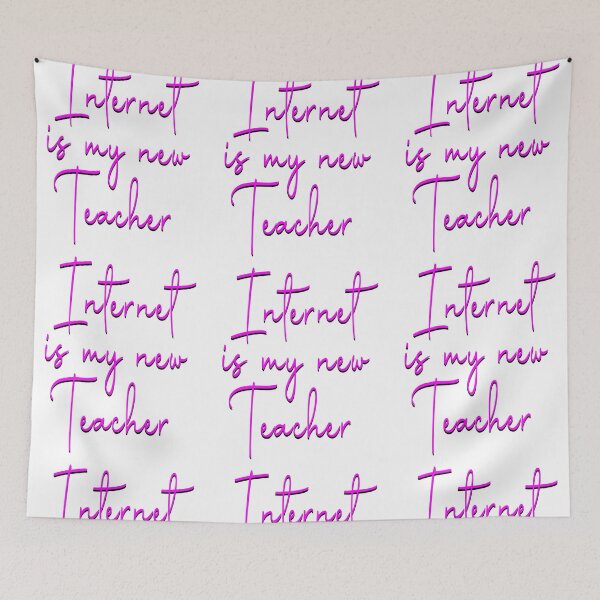 Internet
is my new
Teacher
Internet
is my new
Teacher
Internet
is my new
Teacher
Internet
is my new
Teacher
Internet
is my new
Teacher
Internet
is my new
Teacher
Internet
Internet
Internet